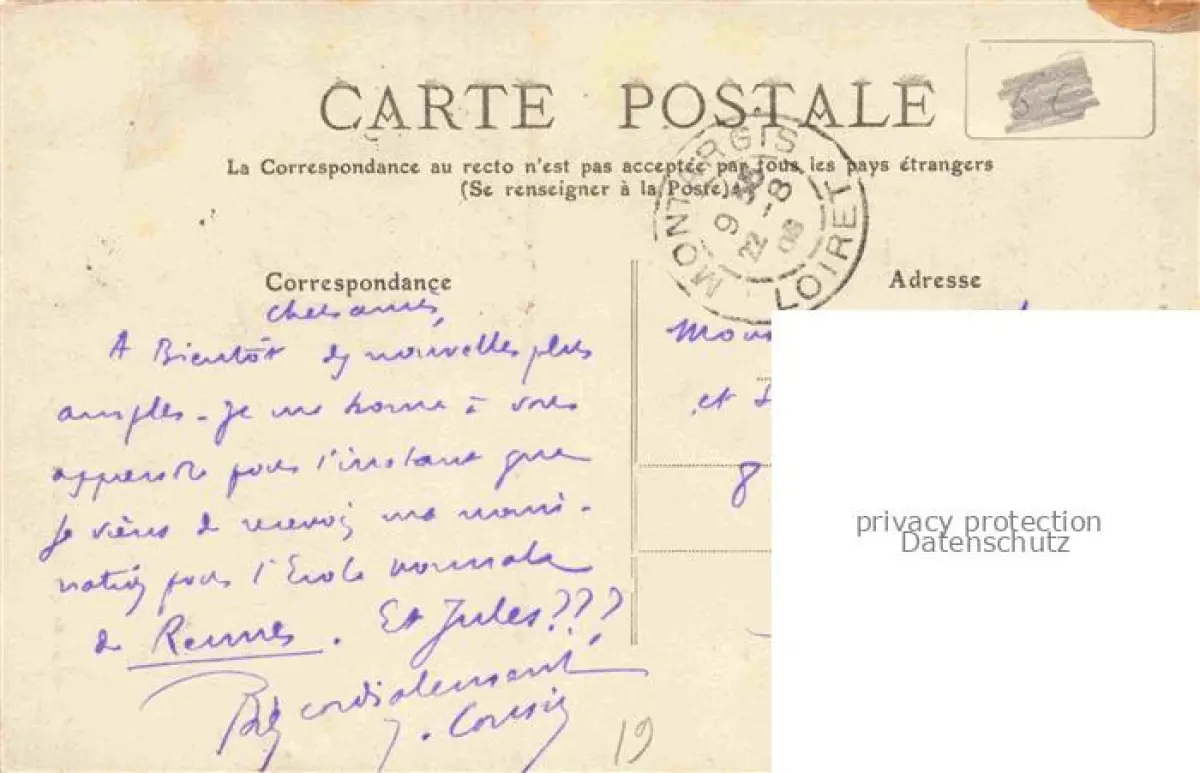 CARTE POSTALE
La Correspondance au recto n'est pas acceptée par tous les pays étrangers
(Se renseigner à la Poste)
MONTARGIS
LOIRET
9
22 -8
08
Correspondance
Adresse
Chers amis,
A Bientôt des nouvelles plus
amples. Je me borne à vous
apprendre pour l'instant que
je viens de recevoir ma nomi-
nation pour l'Ecole normale
de Rennes. Et Jules???
Bien cordialement
J. Cousin
et
8
19
privacy protection
Datenschutz